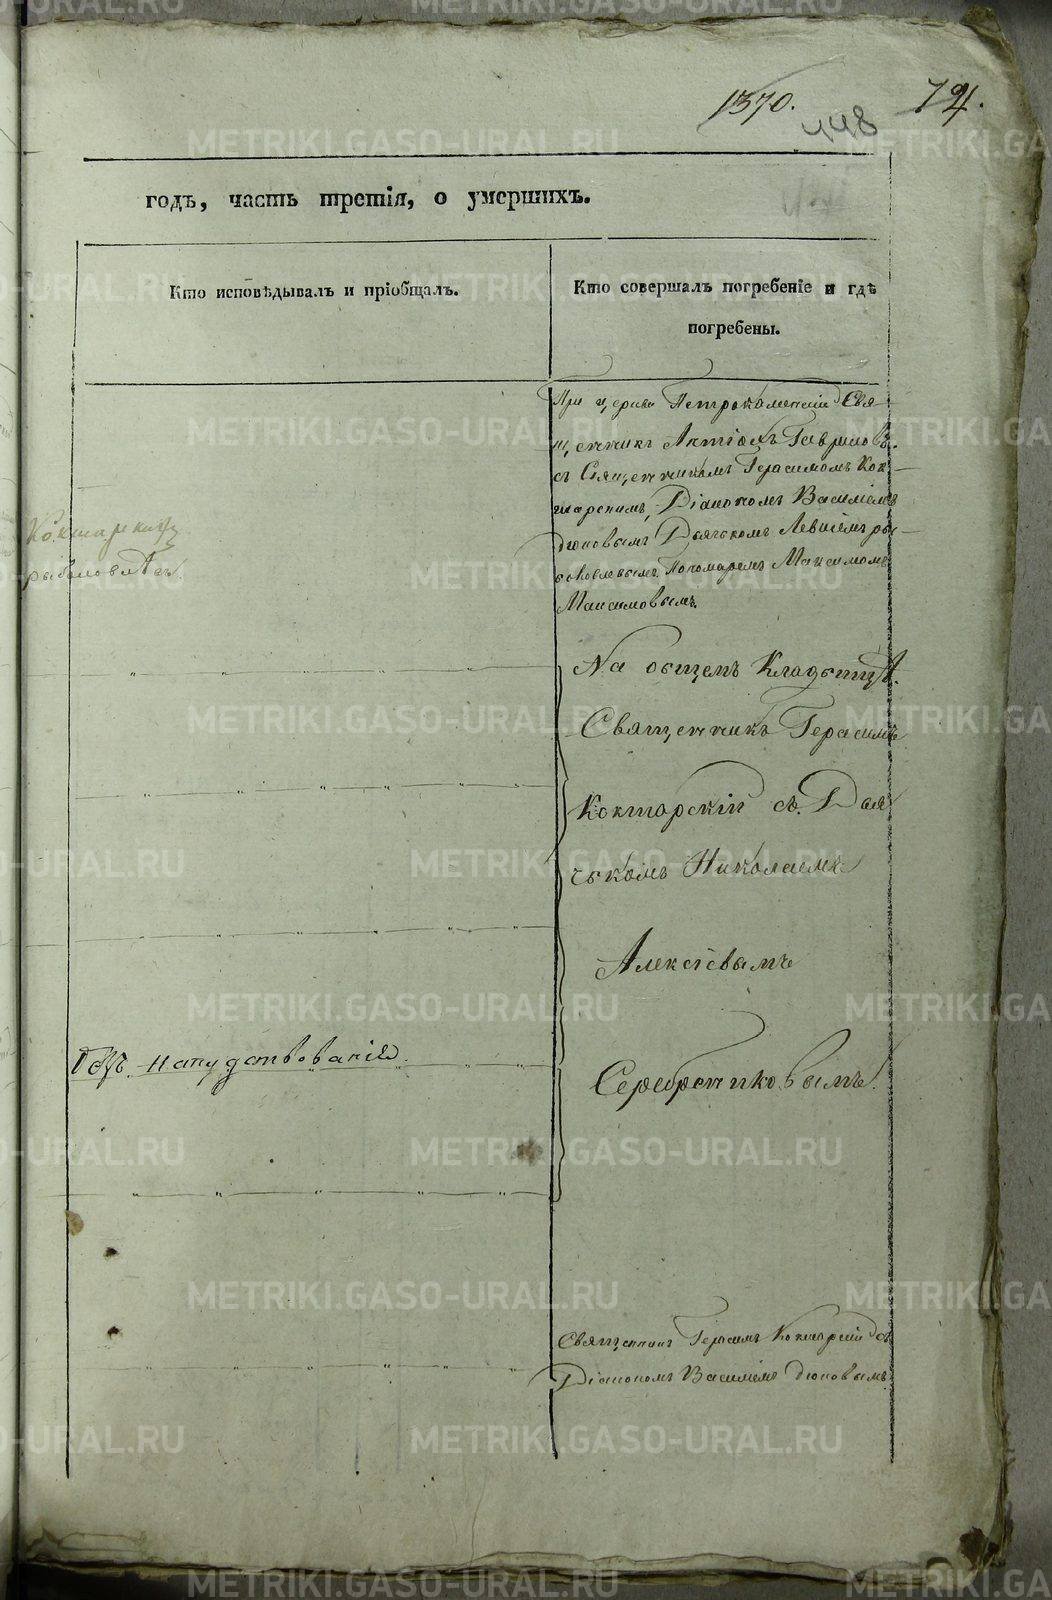 1370. 74.
448
годъ, часть третія, о умершихъ.
Кто исповѣдывалъ и пріобщалъ.
Кто совершалъ погребеніе и гдѣ
погребены.
При церкви Петрокаменскій Свя-
щенникъ Гавриловъ.
съ Священникомъ Герасимомъ Кок-
шарскимъ, Діакономъ Василіемъ
Дюковымъ Дьячкомъ Левшемъ
Пономаремъ Максимомъ
Максимовымъ.
На общемъ Кладбищѣ.
Священникъ Герасимъ
Кокшарскій съ Дья
чькомъ Николаемъ
Алексіевымъ
Серебрениковымъ.
Безъ напудствованія.
Священникъ Герасимъ Кокшарскій съ
Діакономъ Василіемъ Дюковымъ
METRIKI.GASO-URAL.RU